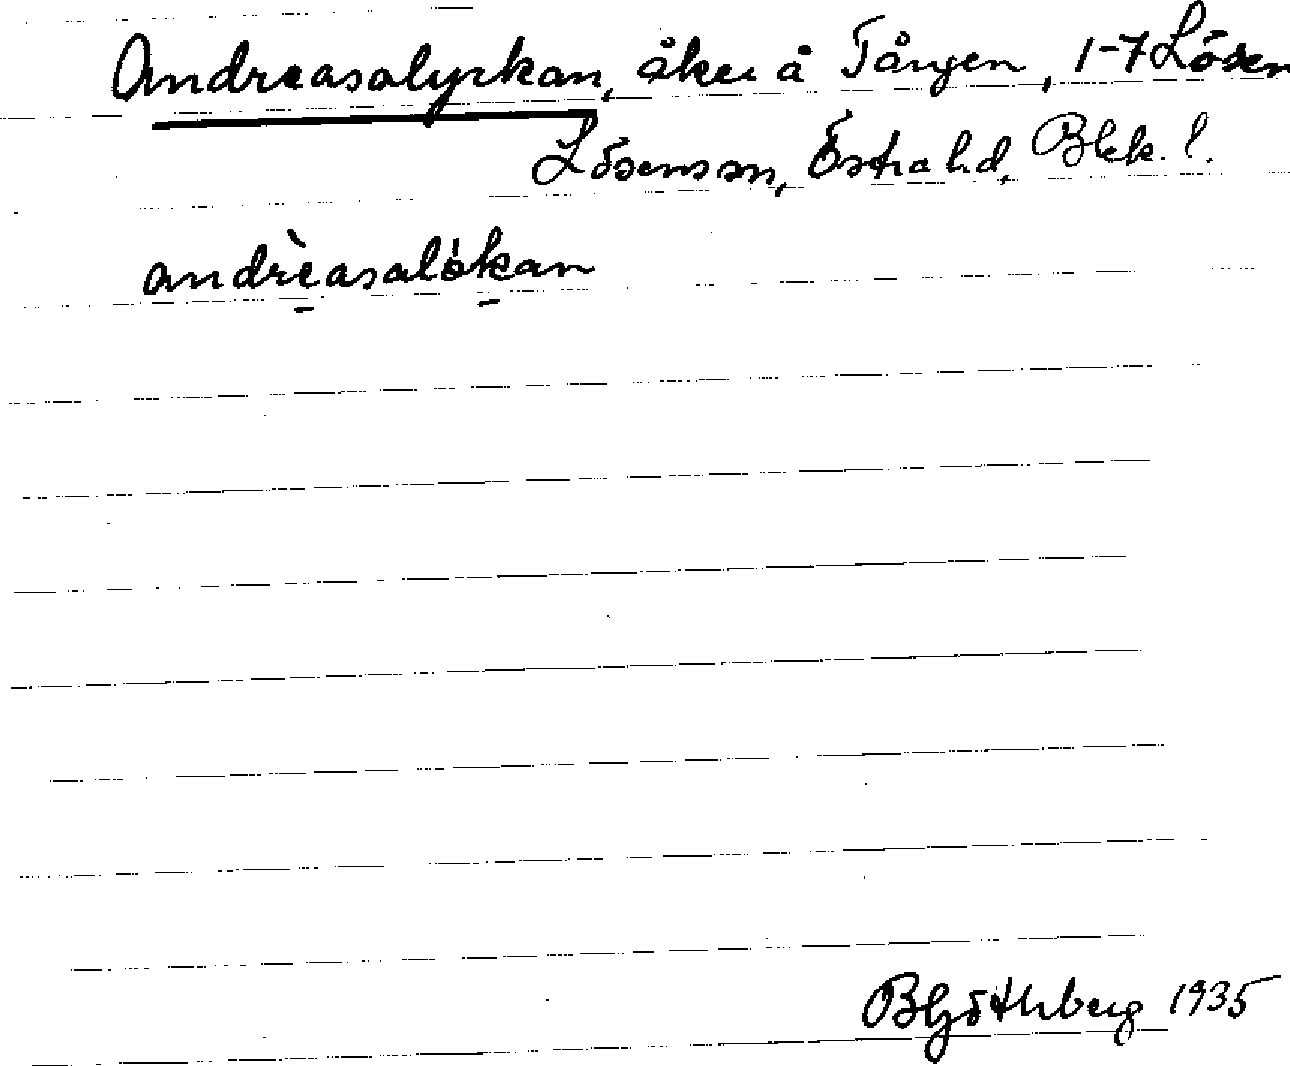 Andreasalyckan, åker å Tången, 1-7 Lösen
Lösens sn, Östra hd, Blek. l.
andrèasalökan
B Göthberg 1935